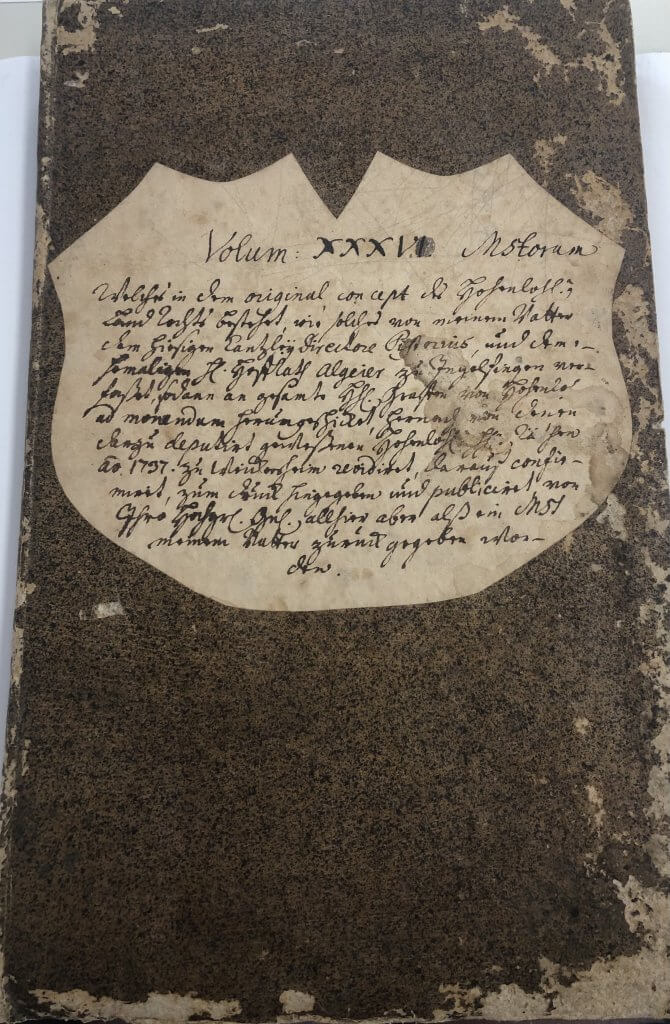 Volum: XXXVI Mstorum
Welches in dem original concept des Hohenlohl.
Land Rechts bestehet, wie solches von meinem Vatter
dem hiesigen Cantzley Directore Pistorius, und dem e-
hemaligen H. Hoffrath Algeier zu Ingelfingen ver-
faßet, sodann an gesamte HH. Grafen von Hohenlo
ad monendum herumgeschicket, hernach von denen
darzu deputirt geweßenen Hohenlohl. HH. Räthen
Ao. 1737. zu Weickersheim revidiret, darauf confir-
miret, zum Druck hingegeben und publiciret von
Ihro Hochgrl. allhier aber alß ein Mst
meinem Vatter zurück gegeben wor-
den.